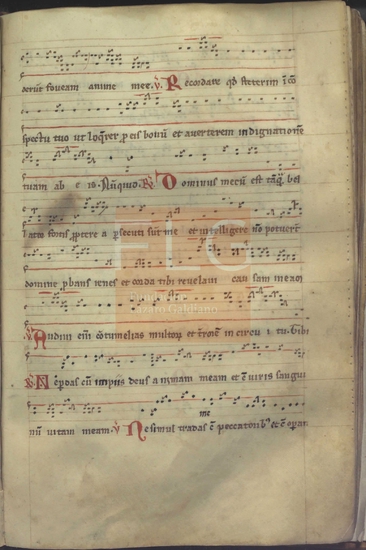 derūt foveam anime mee. ℣ Recordare qd steterim ī cō
spectu tuo ut loqrer, p eis bonū et averterem indignationē
tuam ab e is. Nūquid. ℟ Dominus mecū est tāq bel
lator fortis, pptere a psecuti sūt me et intelligere nō potuerūt
domine pbans renes et corda tibi revelavi cau sam meam
℣ Audivi eīm cōtumelias multorū et terrorē in circu i tu. Tibi
℟ Ne pdas cū impiis deus a nimam meam et cū viris sangui
nū vitam meam. ℣ Ne simul tradas me cū peccatorib et cū operan
FLG
Lázaro Galdiano